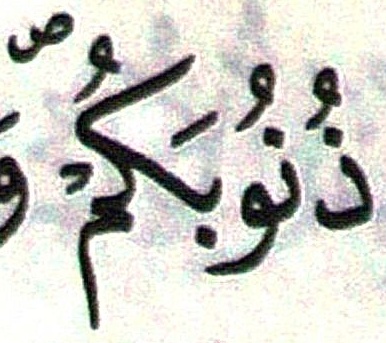 ذُنُوبَكُمْ ۖ و